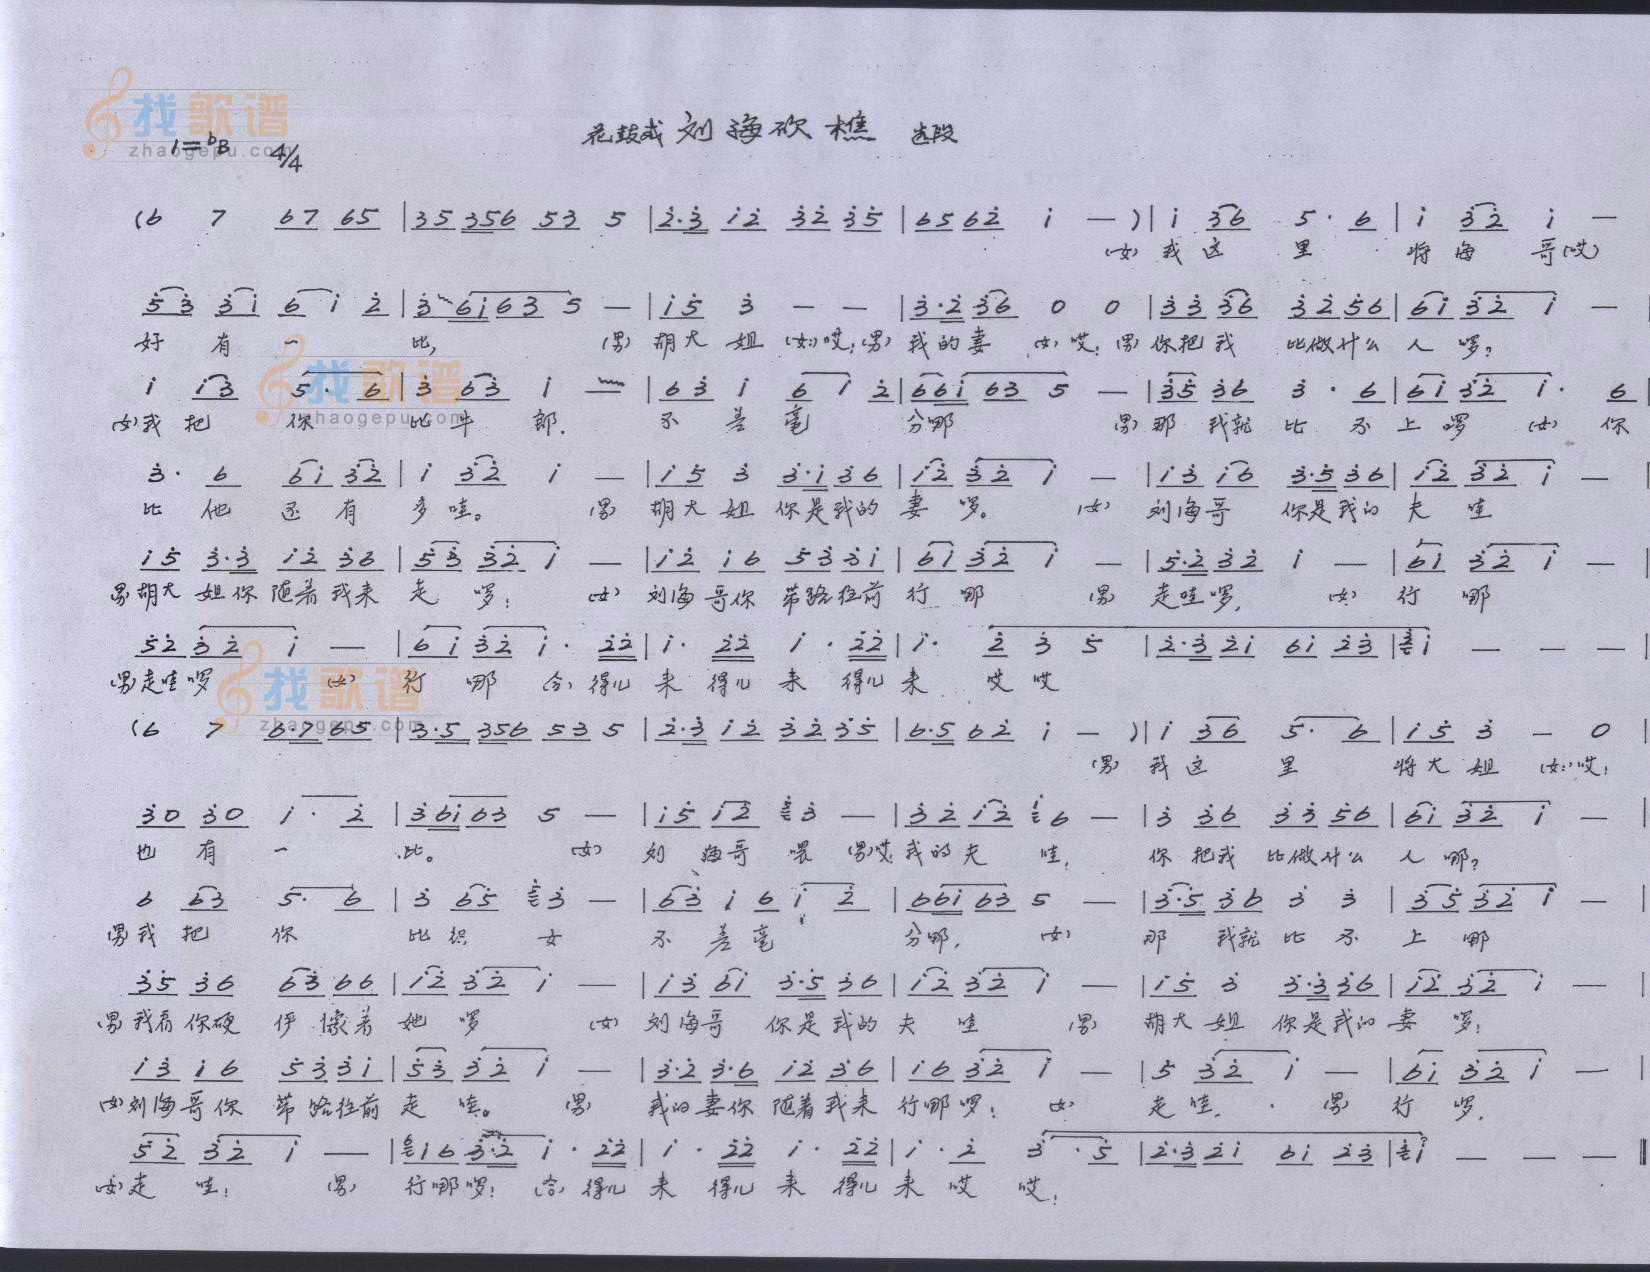 找歌谱
zhaogepu.com
花鼓戏 刘海砍樵 选段
1=bB 4/4
(6 7 67 65 | 35 356 53 5 | 2·3 12 32 35 | 65 62 1 — ) | 1 36 5· 6 | 1 32 1 —
(女) 我 这 里 将 海 哥 (哎)
53 31 6 1 2 | 3 61 63 5 — | 15 3 — — | 3·2 36 0 0 | 33 36 32 56 | 61 32 1 — |
好 有 一 比, (男) 胡大 姐 (女:)哎:(男) 我的妻 (女)哎:(男)你把我 比做什么 人 啰?
1 13 5· 6 | 3 63 1 — | 63 1 6 1 2 | 661 63 5 — | 35 36 3· 6 | 61 32 1· 6
(女)我 把 你 比 牛 郎. 不 差 毫 分哪 (男)那 我就 比 不 上 啰 (女) 你
找歌谱
zhaogepu.com
3· 6 61 32 | 1 32 1 — | 15 3 3·1 36 | 12 32 1 — | 13 16 3·5 36 | 12 32 1 — |
比 他 还 有 多 哇。 (男) 胡大 姐 你是我的 妻 啰。 (女) 刘海哥 你是我的 夫 哇
15 3·3 12 36 | 53 32 1 — | 12 16 53 31 | 61 32 1 — | 5·2 32 1 — | 61 32 1 — |
(男)胡大 姐你 随着 我来 走 啰: (女) 刘海哥你 带路往前 行 哪 (男) 走哇啰, (女) 行 哪
52 32 1 — | 61 32 1· 22 | 1· 22 1· 22 | 1· 2 3 5 | 2·3 21 61 23 | 1 — — —
(男)走哇啰 (女) 行 哪 (合)得儿 来 得儿 来 得儿 来 哎 哎
找歌谱
zhaogepu.com
(6 7 6·7 65 | 3·5 356 53 5 | 2·3 12 32 35 | 6·5 62 1 — ) | 1 36 5· 6 | 15 3 — 0 |
(男) 我 这 里 将大 姐 (女:)哎:
30 30 1· 2 | 361 63 5 — | 15 12 3 — | 32 12 6 — | 3 36 33 56 | 61 32 1 — |
也 有 一 比。 (女) 刘 海哥 喂 (男)哎:我的夫 哇, 你 把我 比做什么 人 哪?
6 63 5· 6 | 3 65 3 — | 63 1 6 1 2 | 661 63 5 — | 3·5 36 3 3 | 35 32 1 — |
(男)我 把 你 比 织 女 不 差 毫 分哪, (女) 那 我就 比 不 上 哪
35 36 63 66 | 12 32 1 — | 13 61 3·5 36 | 12 32 1 — | 15 3 3·3 36 | 12 32 1 — |
(男)我看你硬 伊 像着 她 啰 (女) 刘海哥 你是我的 夫 哇 (男) 胡大 姐 你是我的 妻 啰:
13 16 53 31 | 53 32 1 — | 3·2 3·6 12 36 | 16 32 1 — | 5 32 1 — | 61 32 1 — |
(女)刘海哥你 带路往前 走 哇。 (男) 我的妻你 随着我来 行哪啰: (女) 走哇, (男) 行 啰,
52 32 1 — | 16 3·2 1· 22 | 1· 22 1· 22 | 1· 2 3· 5 | 2·3 21 61 23 | 1 — — —
(女)走 哇: (男) 行哪啰: (合)得儿 来 得儿 来 得儿来 哎 哎: